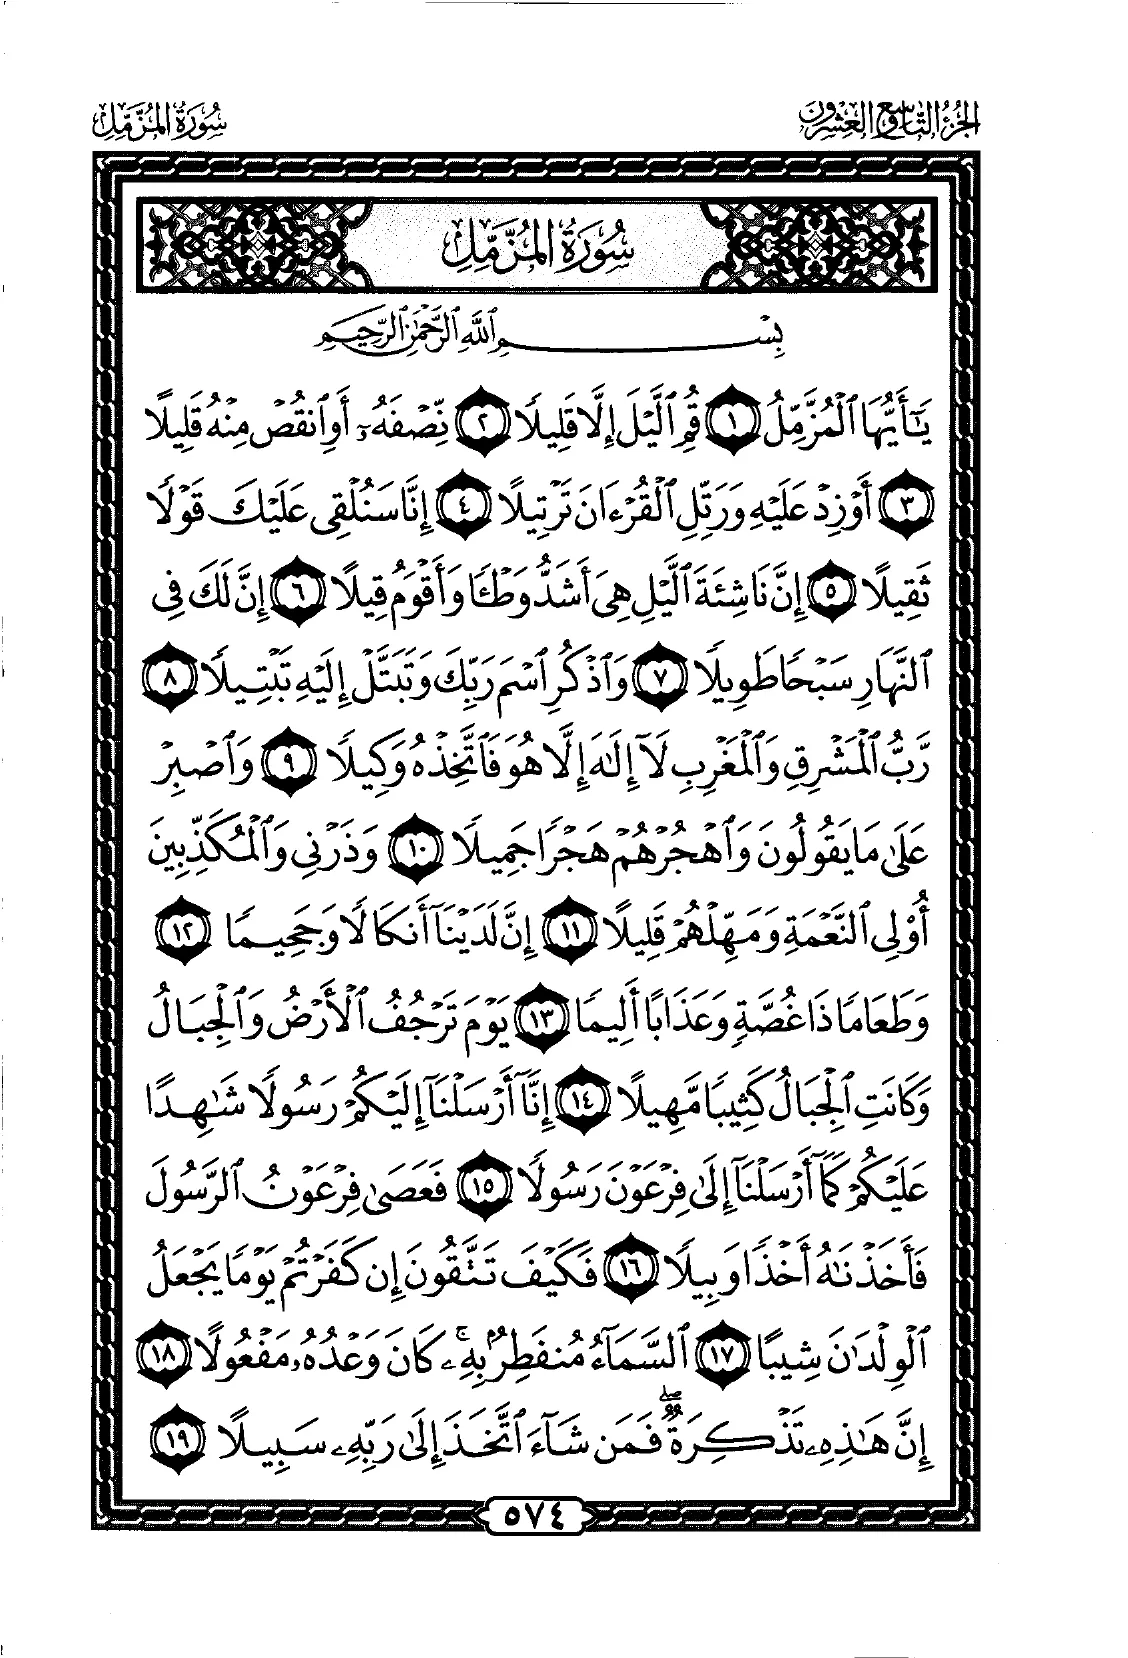 الجزء التاسع والعشرون
سورة المزمل
سورة المزمل
بسم الله الرحمن الرحيم
يَٰٓأَيُّهَا ٱلْمُزَّمِّلُ ١ قُمِ ٱلَّيْلَ إِلَّا قَلِيلًا ٢ نِّصْفَهُۥٓ أَوِ ٱنقُصْ مِنْهُ قَلِيلًا
٣ أَوْ زِدْ عَلَيْهِ وَرَتِّلِ ٱلْقُرْءَانَ تَرْتِيلًا ٤ إِنَّا سَنُلْقِى عَلَيْكَ قَوْلًا
ثَقِيلًا ٥ إِنَّ نَاشِئَةَ ٱلَّيْلِ هِىَ أَشَدُّ وَطْـًٔا وَأَقْوَمُ قِيلًا ٦ إِنَّ لَكَ فِى
ٱلنَّهَارِ سَبْحًا طَوِيلًا ٧ وَٱذْكُرِ ٱسْمَ رَبِّكَ وَتَبَتَّلْ إِلَيْهِ تَبْتِيلًا ٨
رَّبُّ ٱلْمَشْرِقِ وَٱلْمَغْرِبِ لَآ إِلَٰهَ إِلَّا هُوَ فَٱتَّخِذْهُ وَكِيلًا ٩ وَٱصْبِرْ
عَلَىٰ مَا يَقُولُونَ وَٱهْجُرْهُمْ هَجْرًا جَمِيلًا ١٠ وَذَرْنِى وَٱلْمُكَذِّبِينَ
أُو۟لِى ٱلنَّعْمَةِ وَمَهِّلْهُمْ قَلِيلًا ١١ إِنَّ لَدَيْنَآ أَنكَالًا وَجَحِيمًا ١٢
وَطَعَامًا ذَا غُصَّةٍ وَعَذَابًا أَلِيمًا ١٣ يَوْمَ تَرْجُفُ ٱلْأَرْضُ وَٱلْجِبَالُ
وَكَانَتِ ٱلْجِبَالُ كَثِيبًا مَّهِيلًا ١٤ إِنَّآ أَرْسَلْنَآ إِلَيْكُمْ رَسُولًا شَٰهِدًا
عَلَيْكُمْ كَمَآ أَرْسَلْنَآ إِلَىٰ فِرْعَوْنَ رَسُولًا ١٥ فَعَصَىٰ فِرْعَوْنُ ٱلرَّسُولَ
فَأَخَذْنَٰهُ أَخْذًا وَبِيلًا ١٦ فَكَيْفَ تَتَّقُونَ إِن كَفَرْتُمْ يَوْمًا يَجْعَلُ
ٱلْوِلْدَٰنَ شِيبًا ١٧ ٱلسَّمَآءُ مُنفَطِرٌۢ بِهِۦ ۚ كَانَ وَعْدُهُۥ مَفْعُولًا ١٨
إِنَّ هَٰذِهِۦ تَذْكِرَةٌ ۖ فَمَن شَآءَ ٱتَّخَذَ إِلَىٰ رَبِّهِۦ سَبِيلًا ١٩
٥٧٤